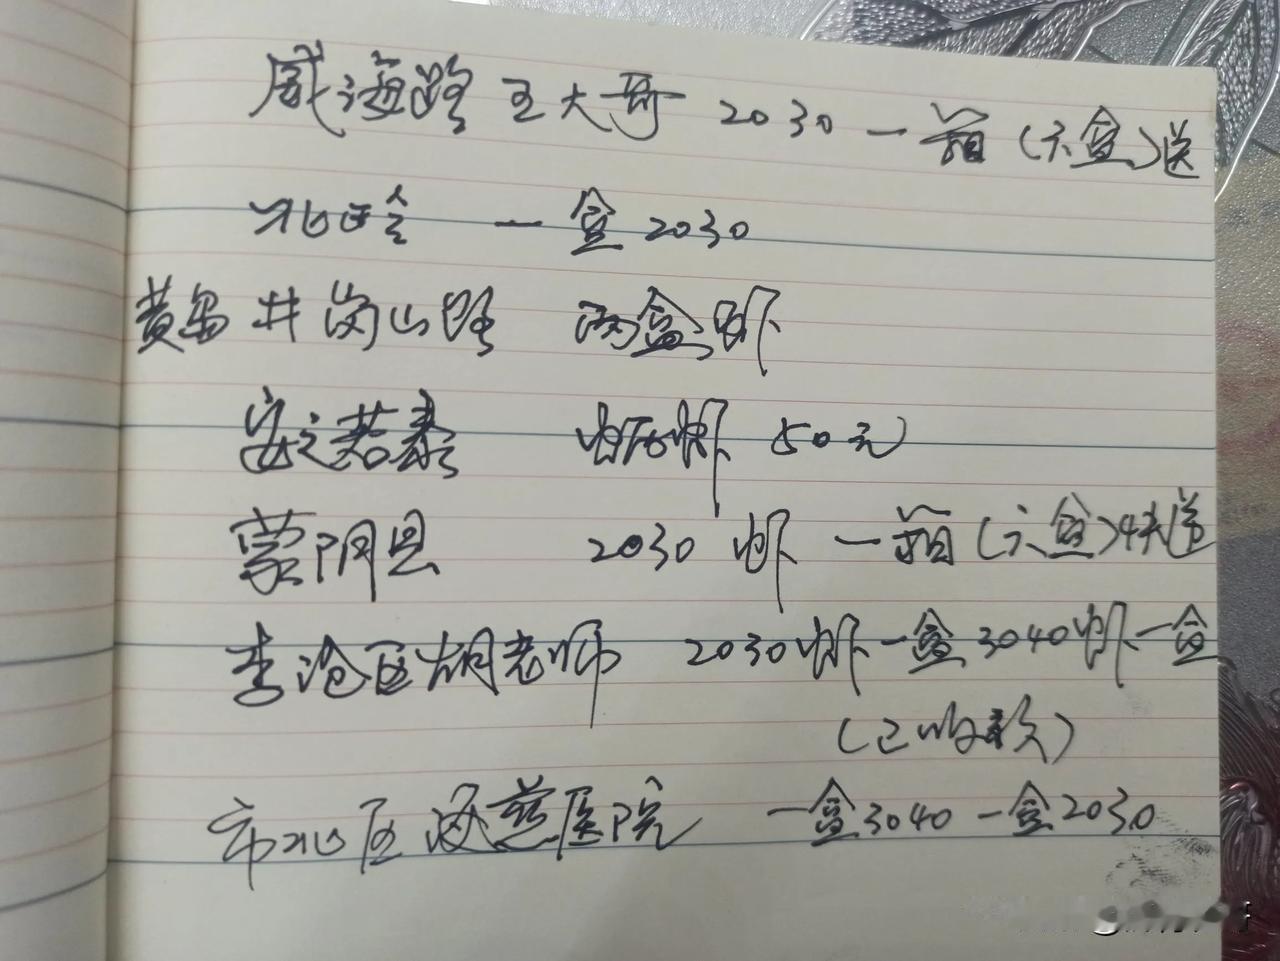 威海路 王大哥 2030 一箱(六盒)送
北岭 一盒 2030
黄岛 井岗山路 两盒虾
安之若泰 虾 50元
蒙阴县 2030 虾 一箱(六盒)4天送
李沧区胡老师 2030虾一盒 3040虾一盒
(已收款)
市北区海慈医院 一盒3040 一盒2030